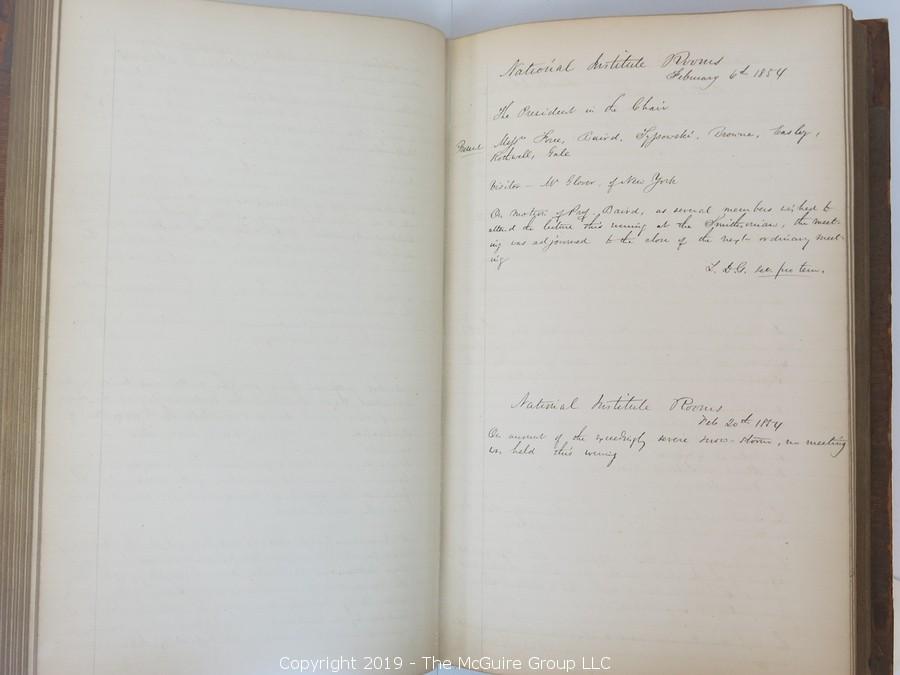 National Institute Rooms
February 6th 1854
The President in the Chair
Present Messrs Baird, Browne, Easby,
Rothwell, Gale
Visitor - Mr Glover, of New York
On motion of Prof Baird, as several members wished to
attend the lecture this evening at the Smithsonian, the meet-
ing was adjourned to the close of the next ordinary meet-
ing
L. D. G. sec pro tem.
National Institute Rooms
Feb 20th 1854
On account of the exceedingly severe snow-storm, no meeting
was held this evening
Copyright 2019 - The McGuire Group LLC